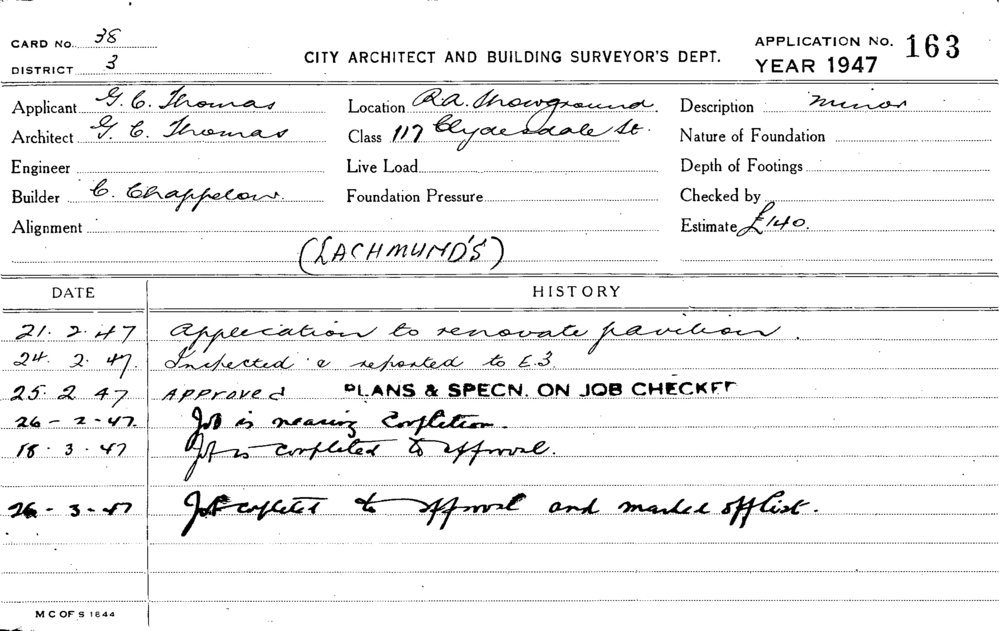 CARD No. 38
DISTRICT 3
CITY ARCHITECT AND BUILDING SURVEYOR'S DEPT.
APPLICATION No. 163
YEAR 1947
Applicant G. C. Thomas Location R.A. Showground. Description minor
Architect G. C. Thomas Class 117 Clydesdale St. Nature of Foundation
Engineer Live Load Depth of Footings
Builder C. Chappelow. Foundation Pressure Checked by
Alignment Estimate £140.
(LACHMUND'S)
DATE HISTORY
21. 2. 47 Application to renovate pavilion.
24. 2. 47. Inspected & reported to E.3.
25. 2. 47 Approved PLANS & SPECN. ON JOB CHECKED
26 - 2 - 47. Job is nearing Completion.
18 . 3 . 47 Job is completed to approval.
26 - 3 - 47 Job completed to approval and marked off list.
M C OF S 1844